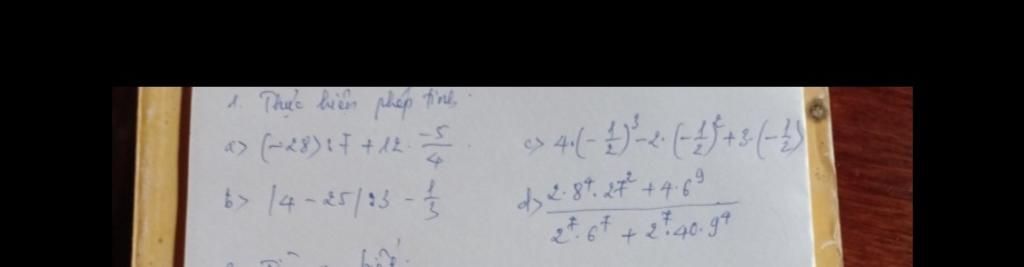 1. Thực hiện phép tính.
a> (-28):7 + 12 · \frac{-5}{4}
c> 4·(-\frac{1}{2})^3 - 2·(-\frac{1}{2})^2 + 3·(-\frac{1}{2})
b> |4 - 25|:3 - \frac{1}{3}
d> \frac{2·8^4·27^2 + 4·6^9}{2^7·6^7 + 2^7·40·9^4}
biết: